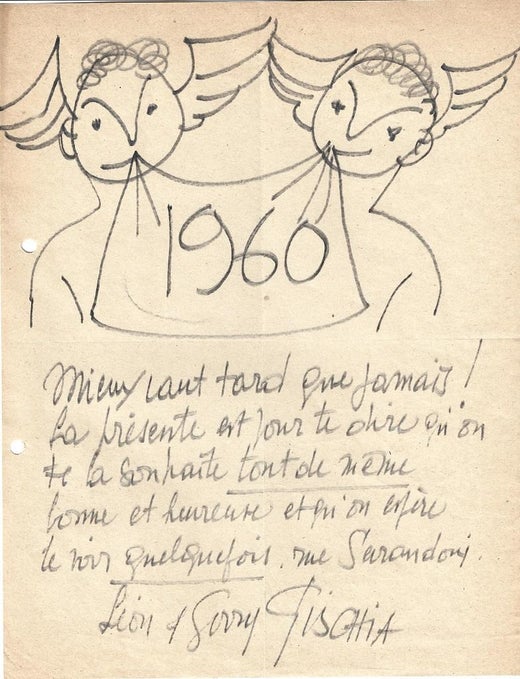 1960
Mieux vaut tard que jamais !
La présente est pour te dire qu'on
te la souhaite tout de même
bonne et heureuse et qu'on espère
te voir quelquefois, rue Servandoni.
Léon & GISCHIA